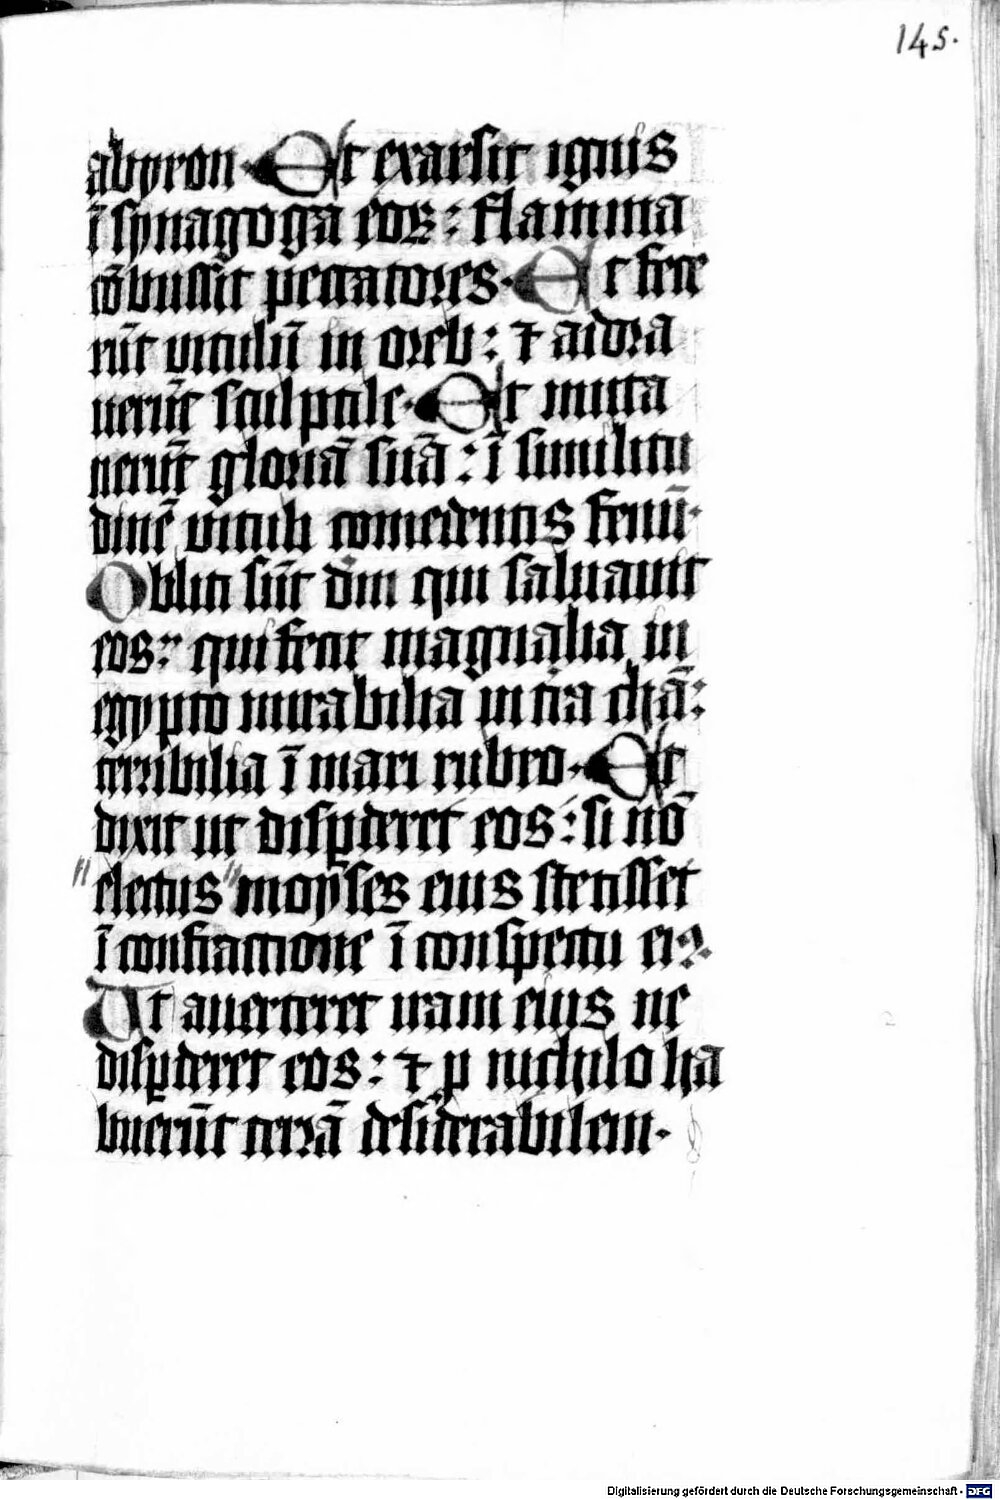 145.
abyron. Et exarsit ignis
ī synagoga eoꝝ: flamma
cōbussit peccatores. Et fece
rūt vitulū in oreb: ⁊ adora
uerūt sculptile. Et muta
uerūt gloriā suā: ī similitu
dinē vituli comedentis fenū.
Obliti sūt dm̄ qui saluauit
eos: qui fecit magnalia in
egypto mirabilia in tr̄a chā:
terribilia ī mari rubro. Et
dixit ut disꝑderet eos: si nō
"electus" moyses eius stetisset
ī confractione ī conspectu eiꝰ.
Ut auerteret iram eius ne
disꝑderet eos: ⁊ ꝓ nichilo ha
buerūt terrā desiderabilem.
Digitalisierung gefördert durch die Deutsche Forschungsgemeinschaft - DFG